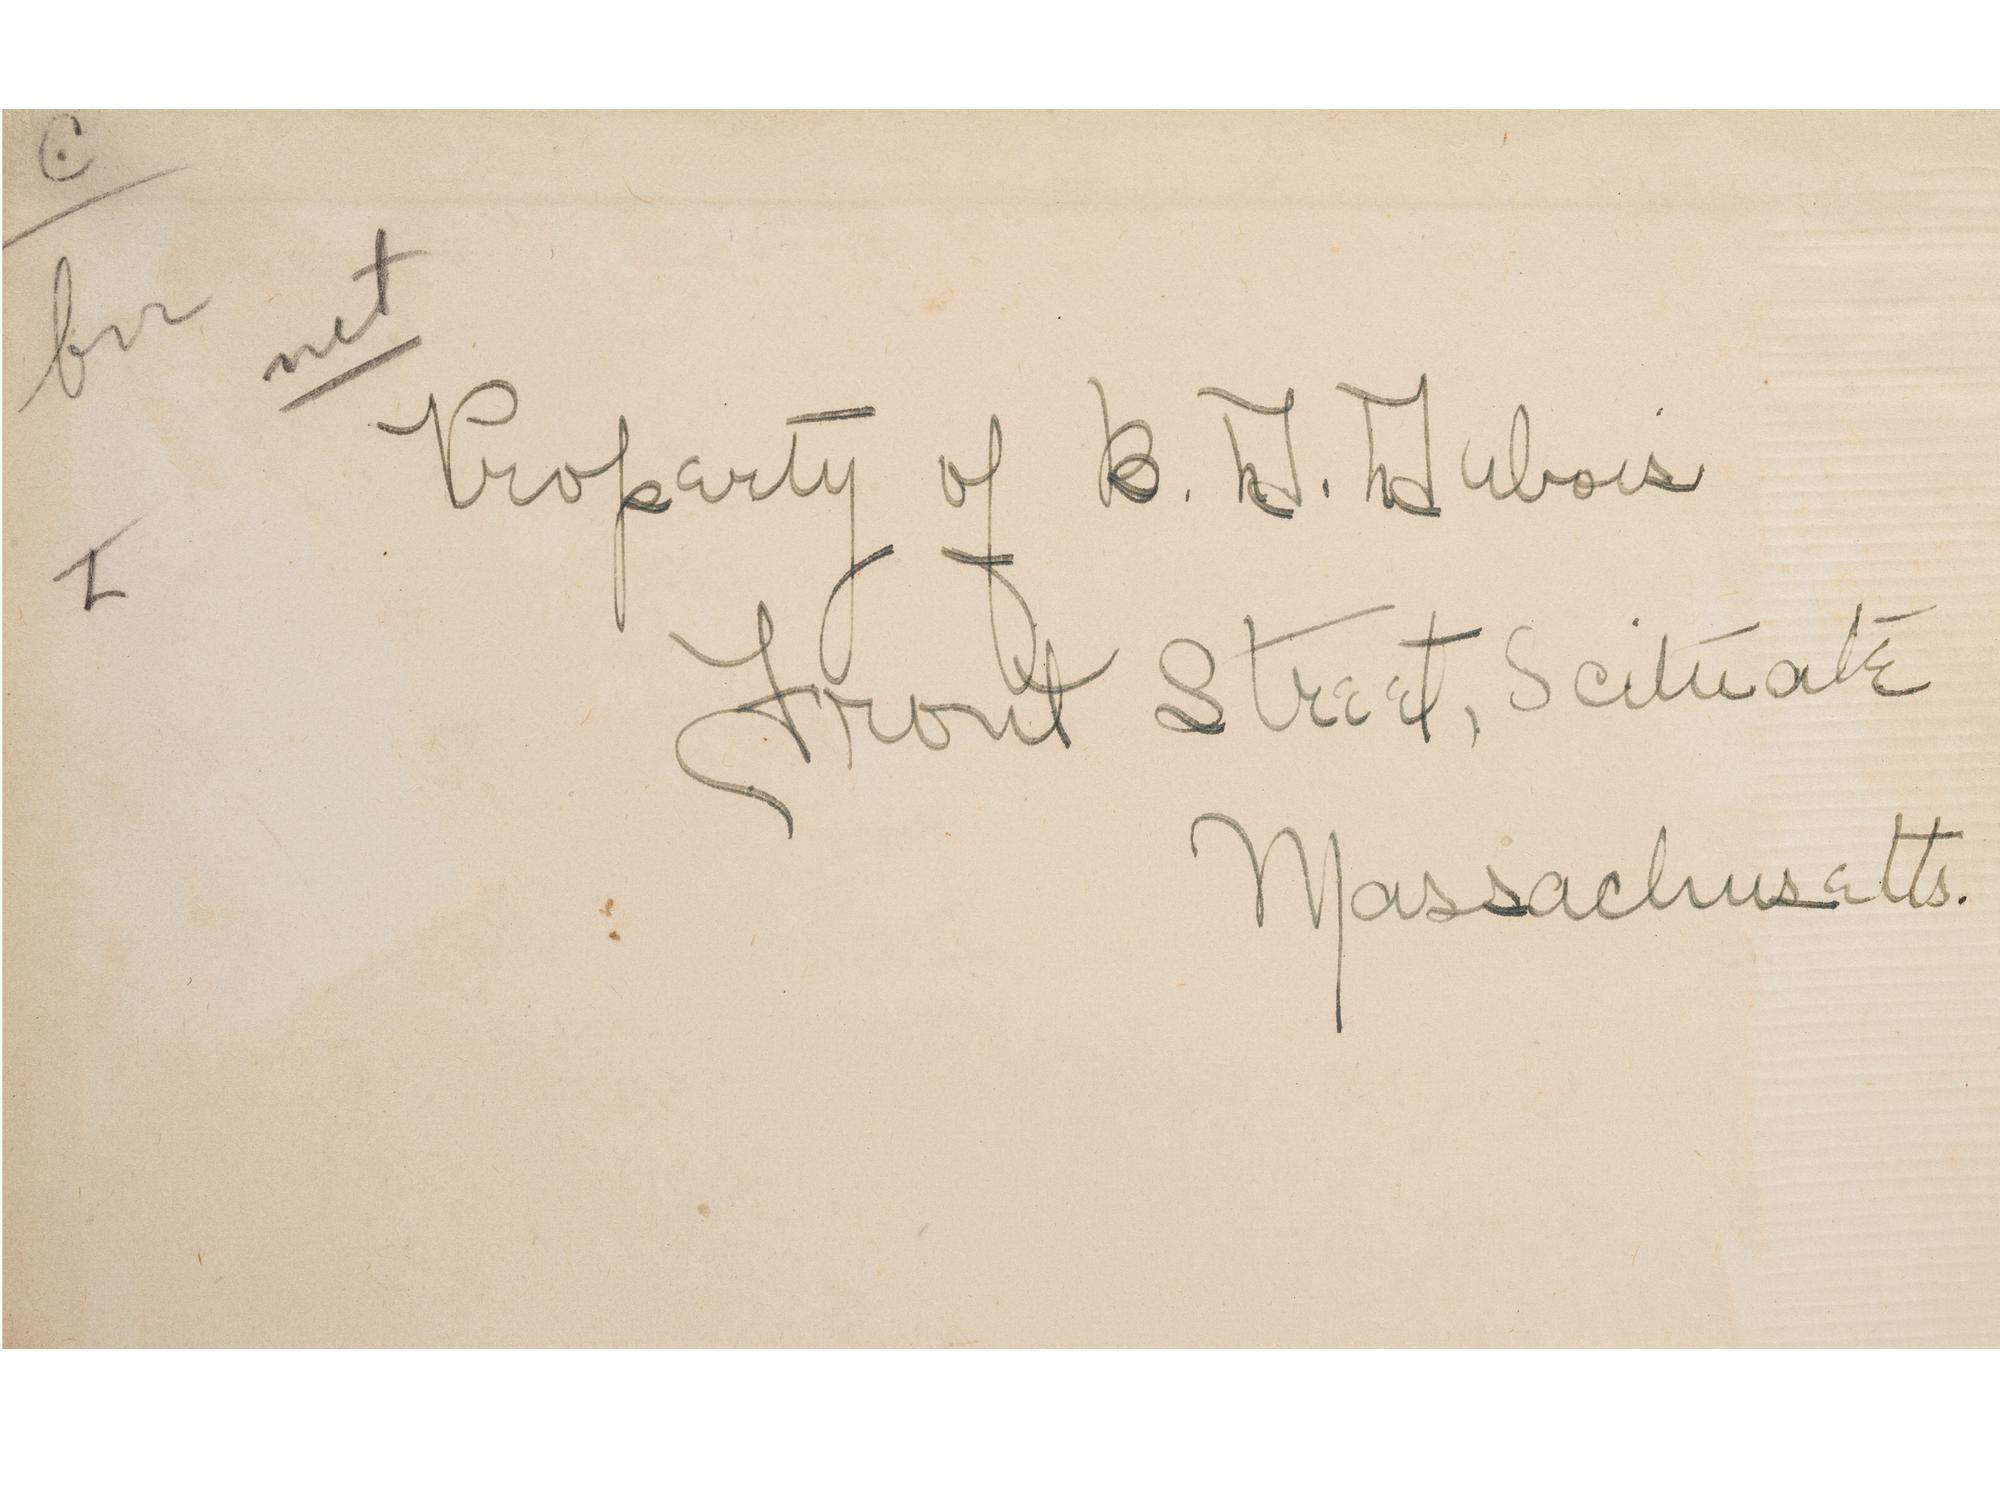 C
bnr
net
Property of B. D. Dubois
Front Street, Scituate
Massachusetts.
I